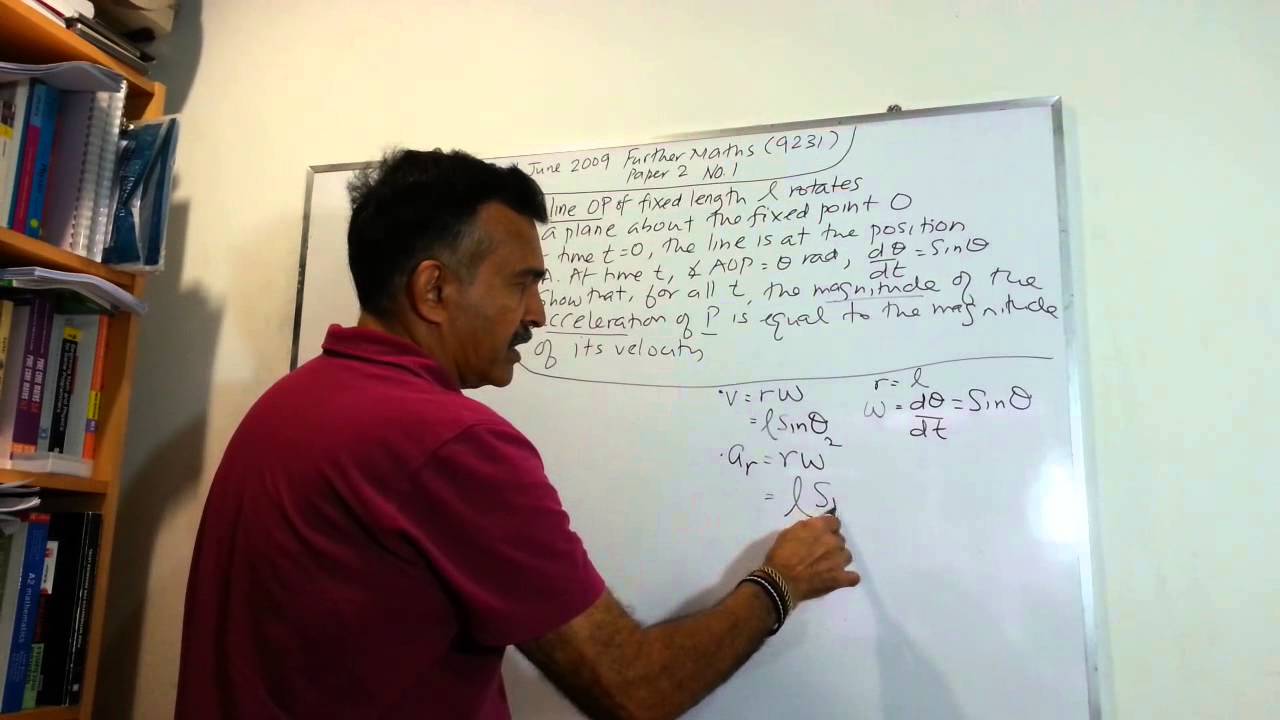 June 2009 Further Maths (9231)
Paper 2 No.1
line OP of fixed length l rotates
a plane about the fixed point O
time t=0, the line is at the position
A. At time t, ∡ AOP = θ rad, dθ/dt = Sinθ
Show that, for all t, the magnitude of the
acceleration of P is equal to the magnitude
of its velocity
·v = rω
= l sinθ
r = l
ω = dθ/dt = Sinθ
·ar = rω²
= l Si
A2 mathematics